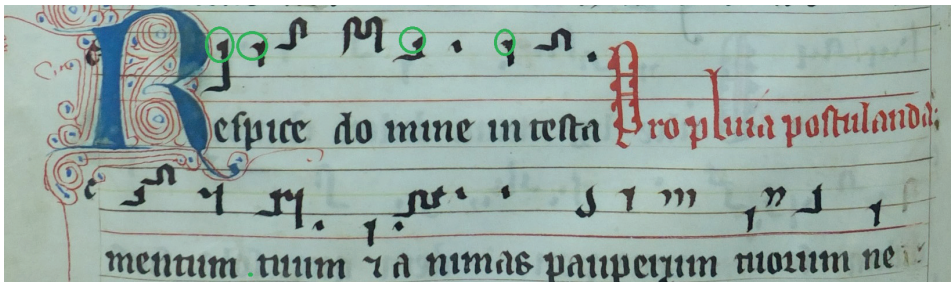 Respice do mine in testa Pro pluuia postulanda:
mentum tuum ⁊ a nimas pauperum tuorum ne